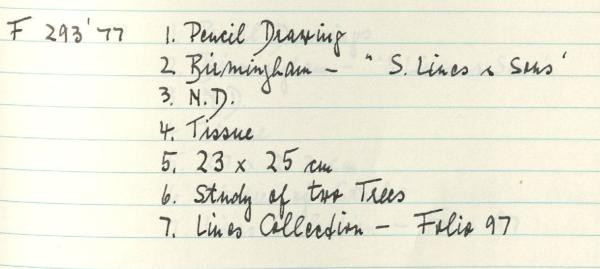 F 293'77 1. Pencil Drawing
2. Birmingham – "S. Lines & Sons'
3. N.D.
4. Tissue
5. 23 x 25 cm
6. Study of two Trees
7. Lines Collection – Folio 97